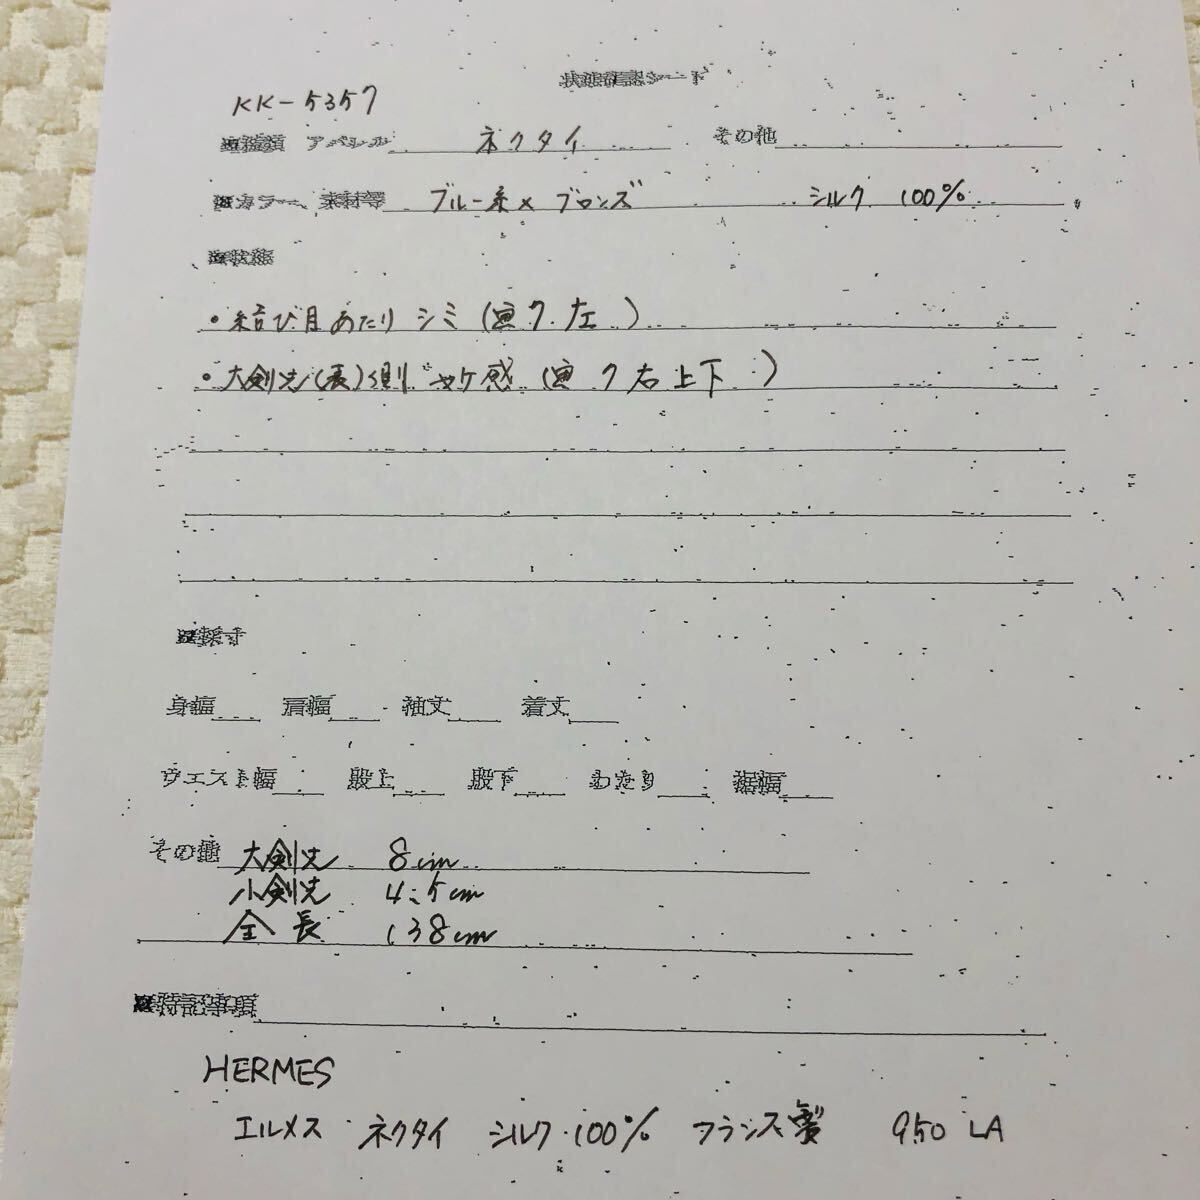 状態確認シート
KK-5357
■種類 アパレル ネクタイ その他
■カラー、素材等 ブルー系×ブロンズ シルク 100%
■状態
・結び目あたり シミ(画7.左)
・大剣先(表)側 ヤケ感(画7右上下)
■採寸
身幅 肩幅 袖丈 着丈
ウエスト幅 股上 股下 わたり 裾幅
その他 大剣先 8cm
小剣先 4.5cm
全長 138cm
■特記事項
HERMES
エルメス ネクタイ シルク・100% フランス製 950 LA